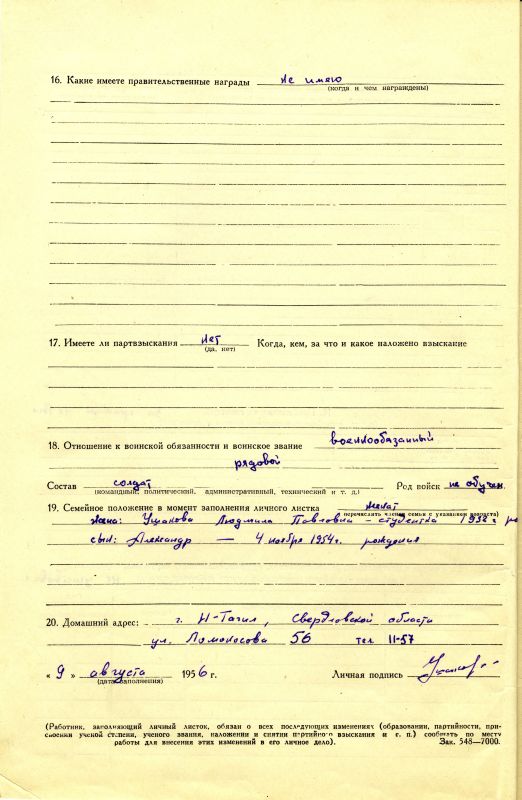 16. Какие имеете правительственные награды не имею
(когда и чем награждены)
17. Имеете ли партвзыскания нет Когда, кем, за что и какое наложено взыскание
(да, нет)
18. Отношение к воинской обязанности и воинское звание военнообязанный
рядовой
Состав солдат Род войск не обучен
(командный, политический, административный, технический и т. д.)
19. Семейное положение в момент заполнения личного листка женат
перечислить членов семьи с указанием возраста)
жена: Ушакова Людмила Павловна – студентка 1932 г
сын: Александр — 4 ноября 1954г. рождения
20. Домашний адрес: г. Н-Тагил, Свердловской области
ул. Ломоносова 56 тел 11-57
« 9 » августа 1956 г. Личная подпись
(дата заполнения)
(Работник, заполняющий личный листок, обязан о всех последующих изменениях (образовании, партийности, при-
своении ученой степени, ученого звания, наложении и снятии партийного взыскания и т. п.) сообщать по месту
работы для внесения этих изменений в его личное дело). Зак. 548—7000.